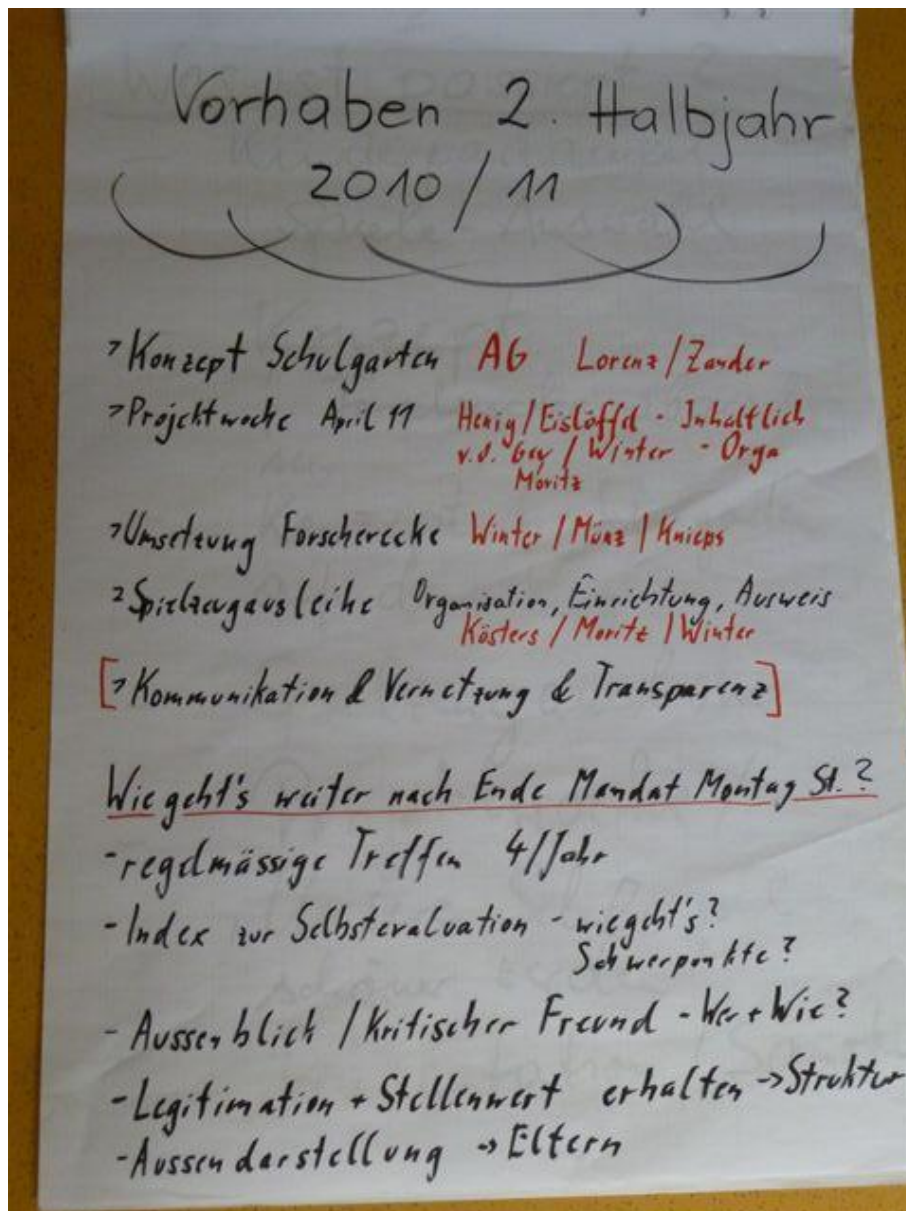 Vorhaben 2. Halbjahr
2010/11
> Konzept Schulgarten AG Lorenz/Zander
> Projektwoche April 11 Henig/Eislöffel - Inhaltlich
v.d. Gey / Winter - Orga
Moritz
> Umsetzung Forscherecke Winter / Münz / Knieps
> Spielzeugausleihe Organisation, Einrichtung, Ausweis
Kösters / Moritz / Winter
[> Kommunikation & Vernetzung & Transparenz]
Wie geht's weiter nach Ende Mandat Montag St.?
- regelmässige Treffen 4/Jahr
- Index zur Selbstevaluation - wie geht's?
Schwerpunkte?
- Aussenblick / Kritischer Freund - Wer + Wie?
- Legitimation + Stellenwert erhalten -> Struktur
- Aussendarstellung -> Eltern